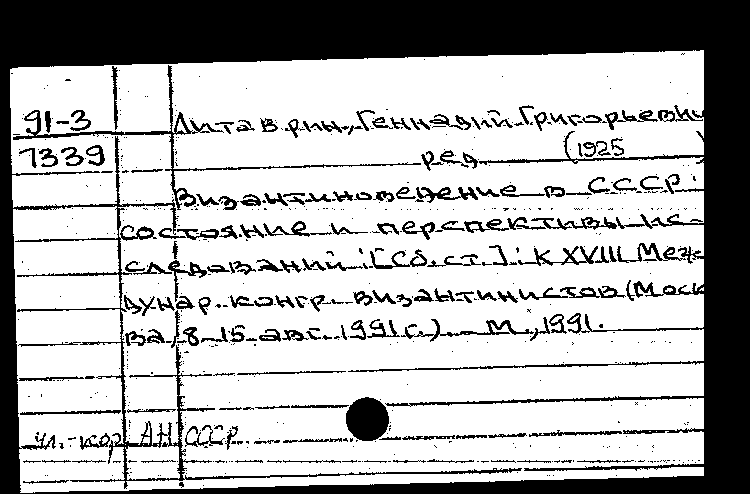 91-3 Литаврин, Геннадий Григорьеви
1339 ред. (1925 )
Византиноведение в СССР:
состояние и перспективы ис-
следований: [Сб. ст.]: К XVIII Меж-
дунар. конгр. византинистов (Моск
ва, 8-15 авг. 1991 г.). - М., 1991.
чл.-кор. АН СССР